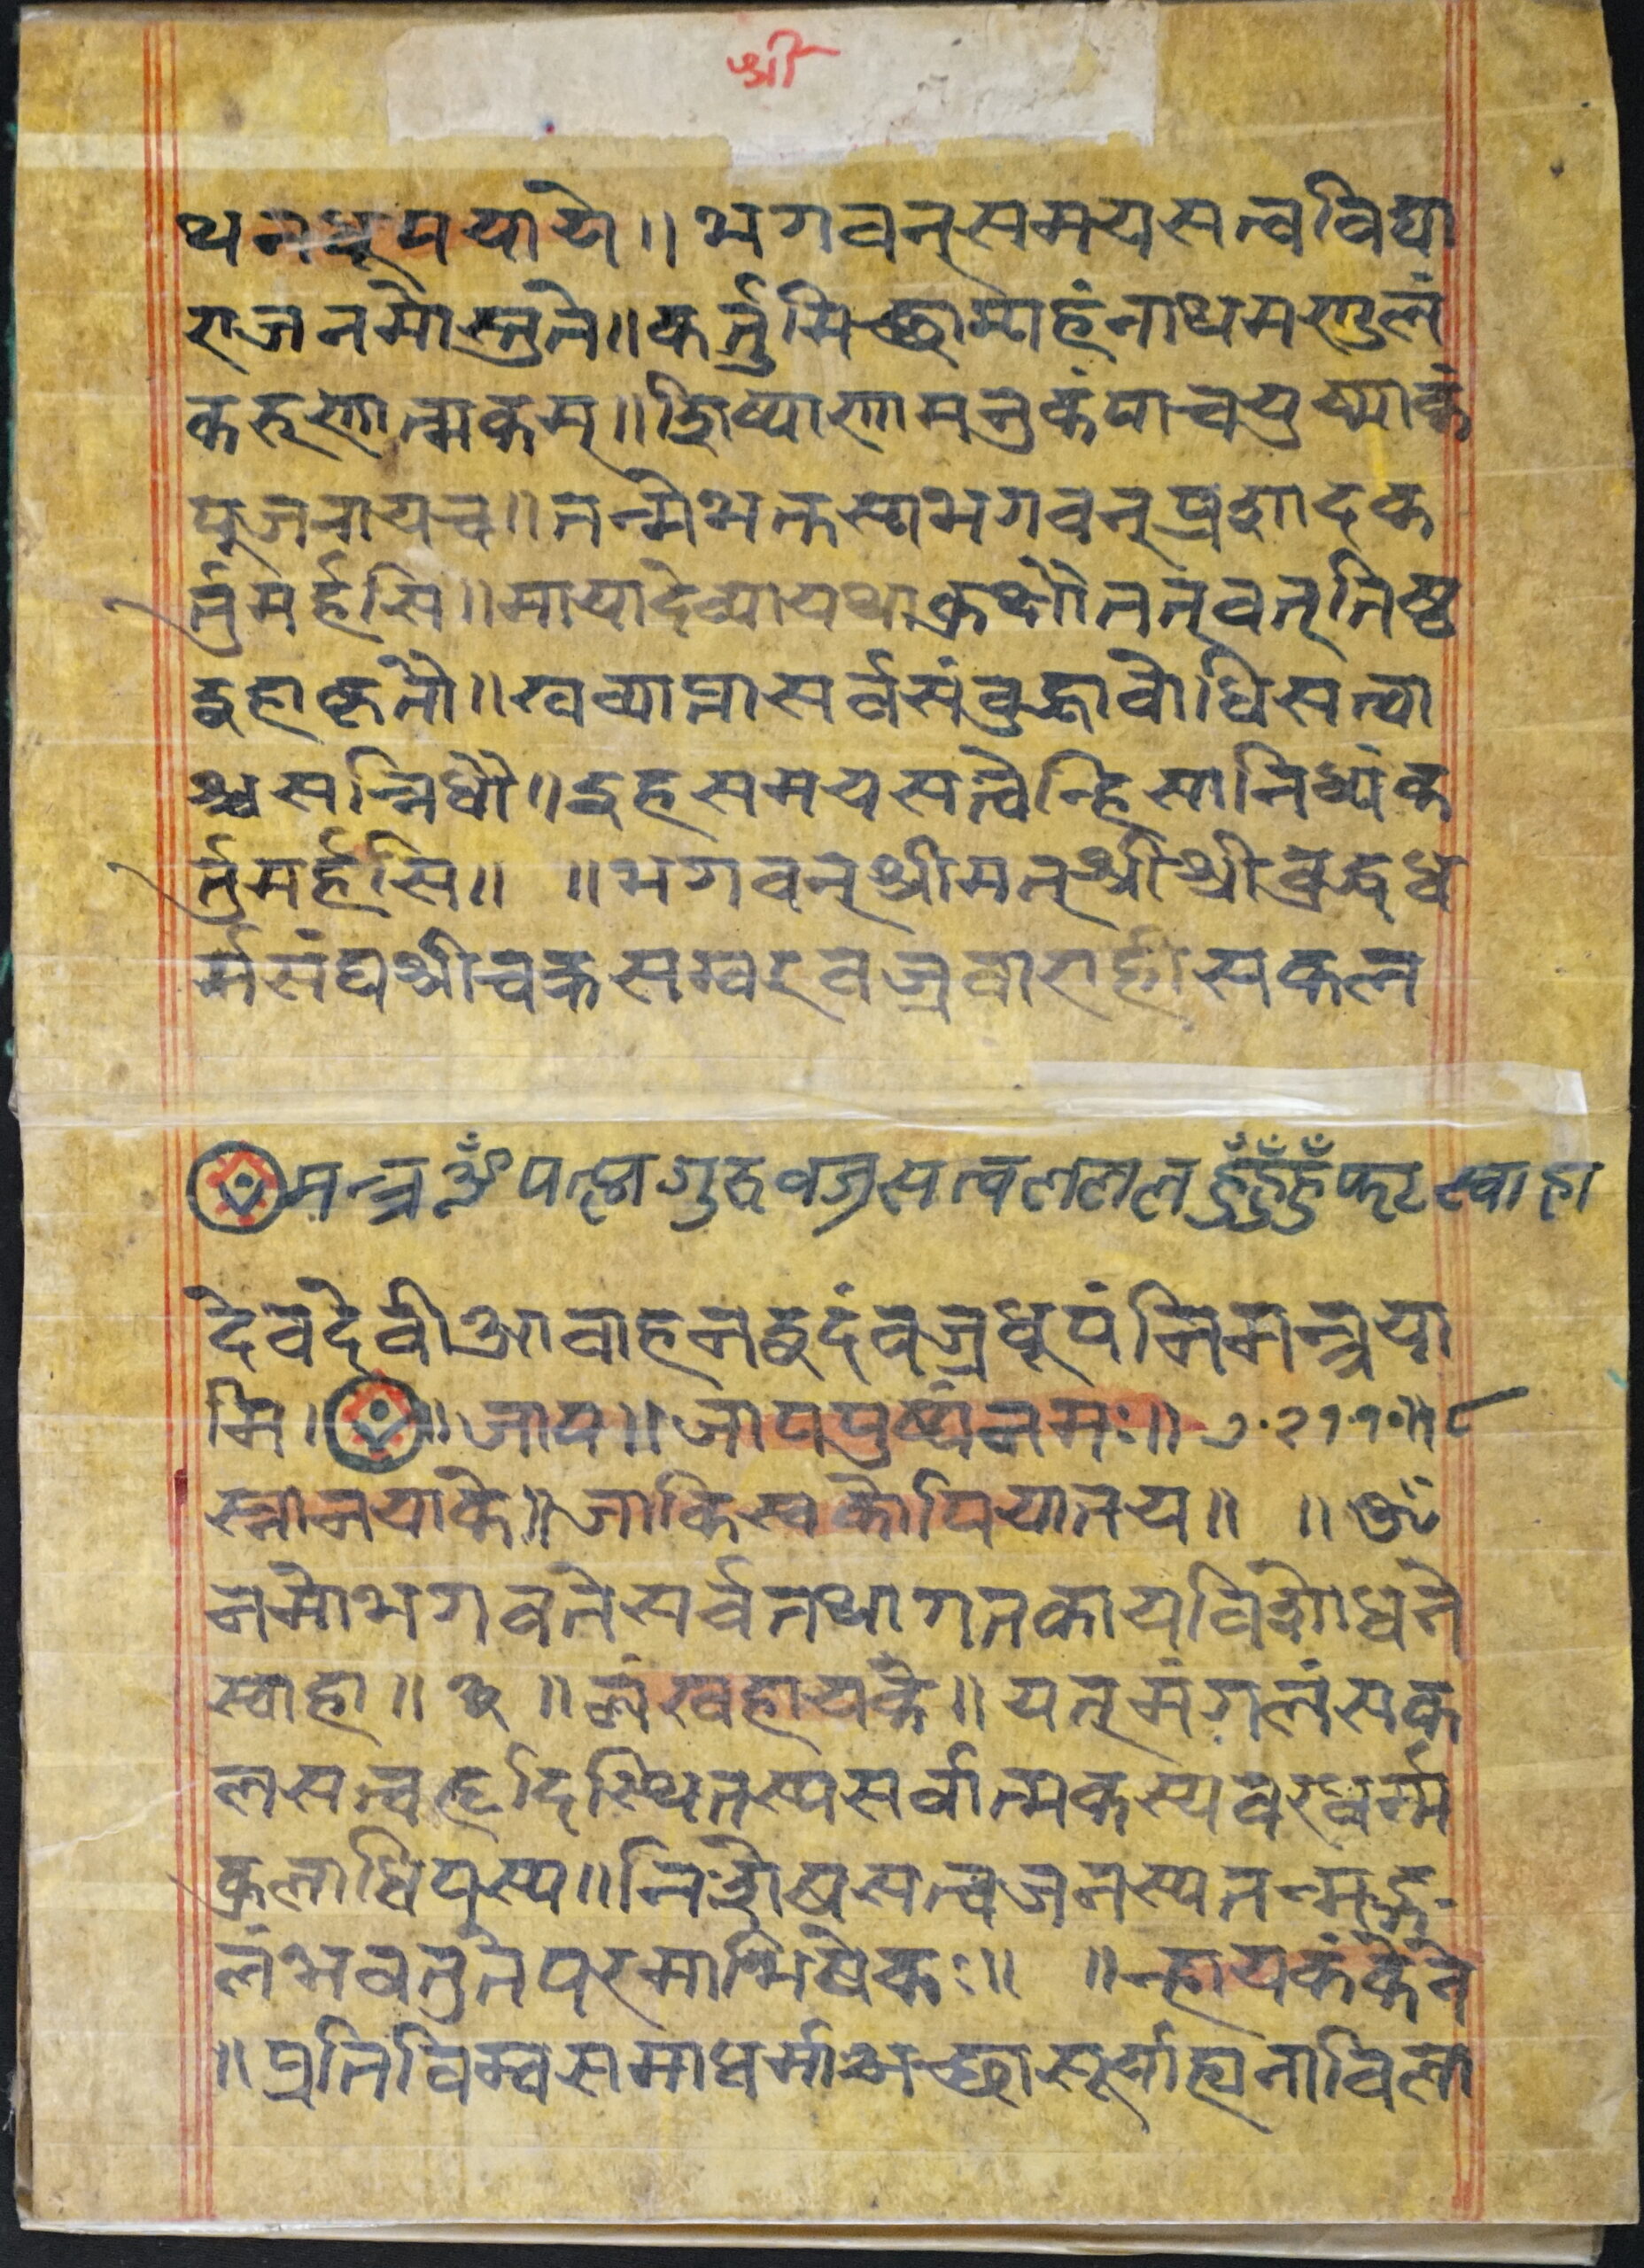 श्री
थनधूपयाये॥ भगवन्समयसत्वविद्या
राजनमोस्तुते॥ कर्तुमिच्छाम्यहंनाथमण्डलं
करुणात्मकम्॥ शिष्याणामनुकंपाचयुष्माकं
पूजनायच॥ तन्मेभक्तस्यभगवन्प्रशादक
र्तुमर्हसि॥ मायादेव्यायथाकुक्षौतत्वत्तिष्ठ
इहाकृतौ॥ खव्याप्तासर्वसंबुद्धावोधिसत्वा
श्चसन्निधौ॥ इहसमयसत्वेन्हिसानिध्यंक
र्तुमर्हसि॥ ॥ भगवन्श्रीमत्श्रीश्रीबुद्धध
र्मसंघश्रीचक्रसम्वरवज्रवाराहीसकल
मन्त्र ॐ गुरुवज्रसत्वललल हुँहुँहुँ फट् स्वाहा
देवदेवीआवाहनइदंवज्रधूपंनिमन्त्रया
मि॥ ॥ जाप॥ जापपुष्पंनमः॥
स्नानयाके॥ जाकिस्वकोपियातय॥ ॥ ॐ
नमोभगवतेसर्वतथागतकायविशोधने
स्वाहा॥ ३ ॥ लंखहायके॥ यत्मंगलंसक
लसत्वहृदिस्थितस्यसर्वात्मकस्यवरधर्म्म
कुलाधिपस्य॥ निःशेषसत्वजनस्यतन्मङ्ग
लंभवतुतेपरमाभिषेकः॥ ॥ न्हायकंकेने
॥ प्रतिविम्वसमाधर्माअच्छासूर्याह्यनाविला